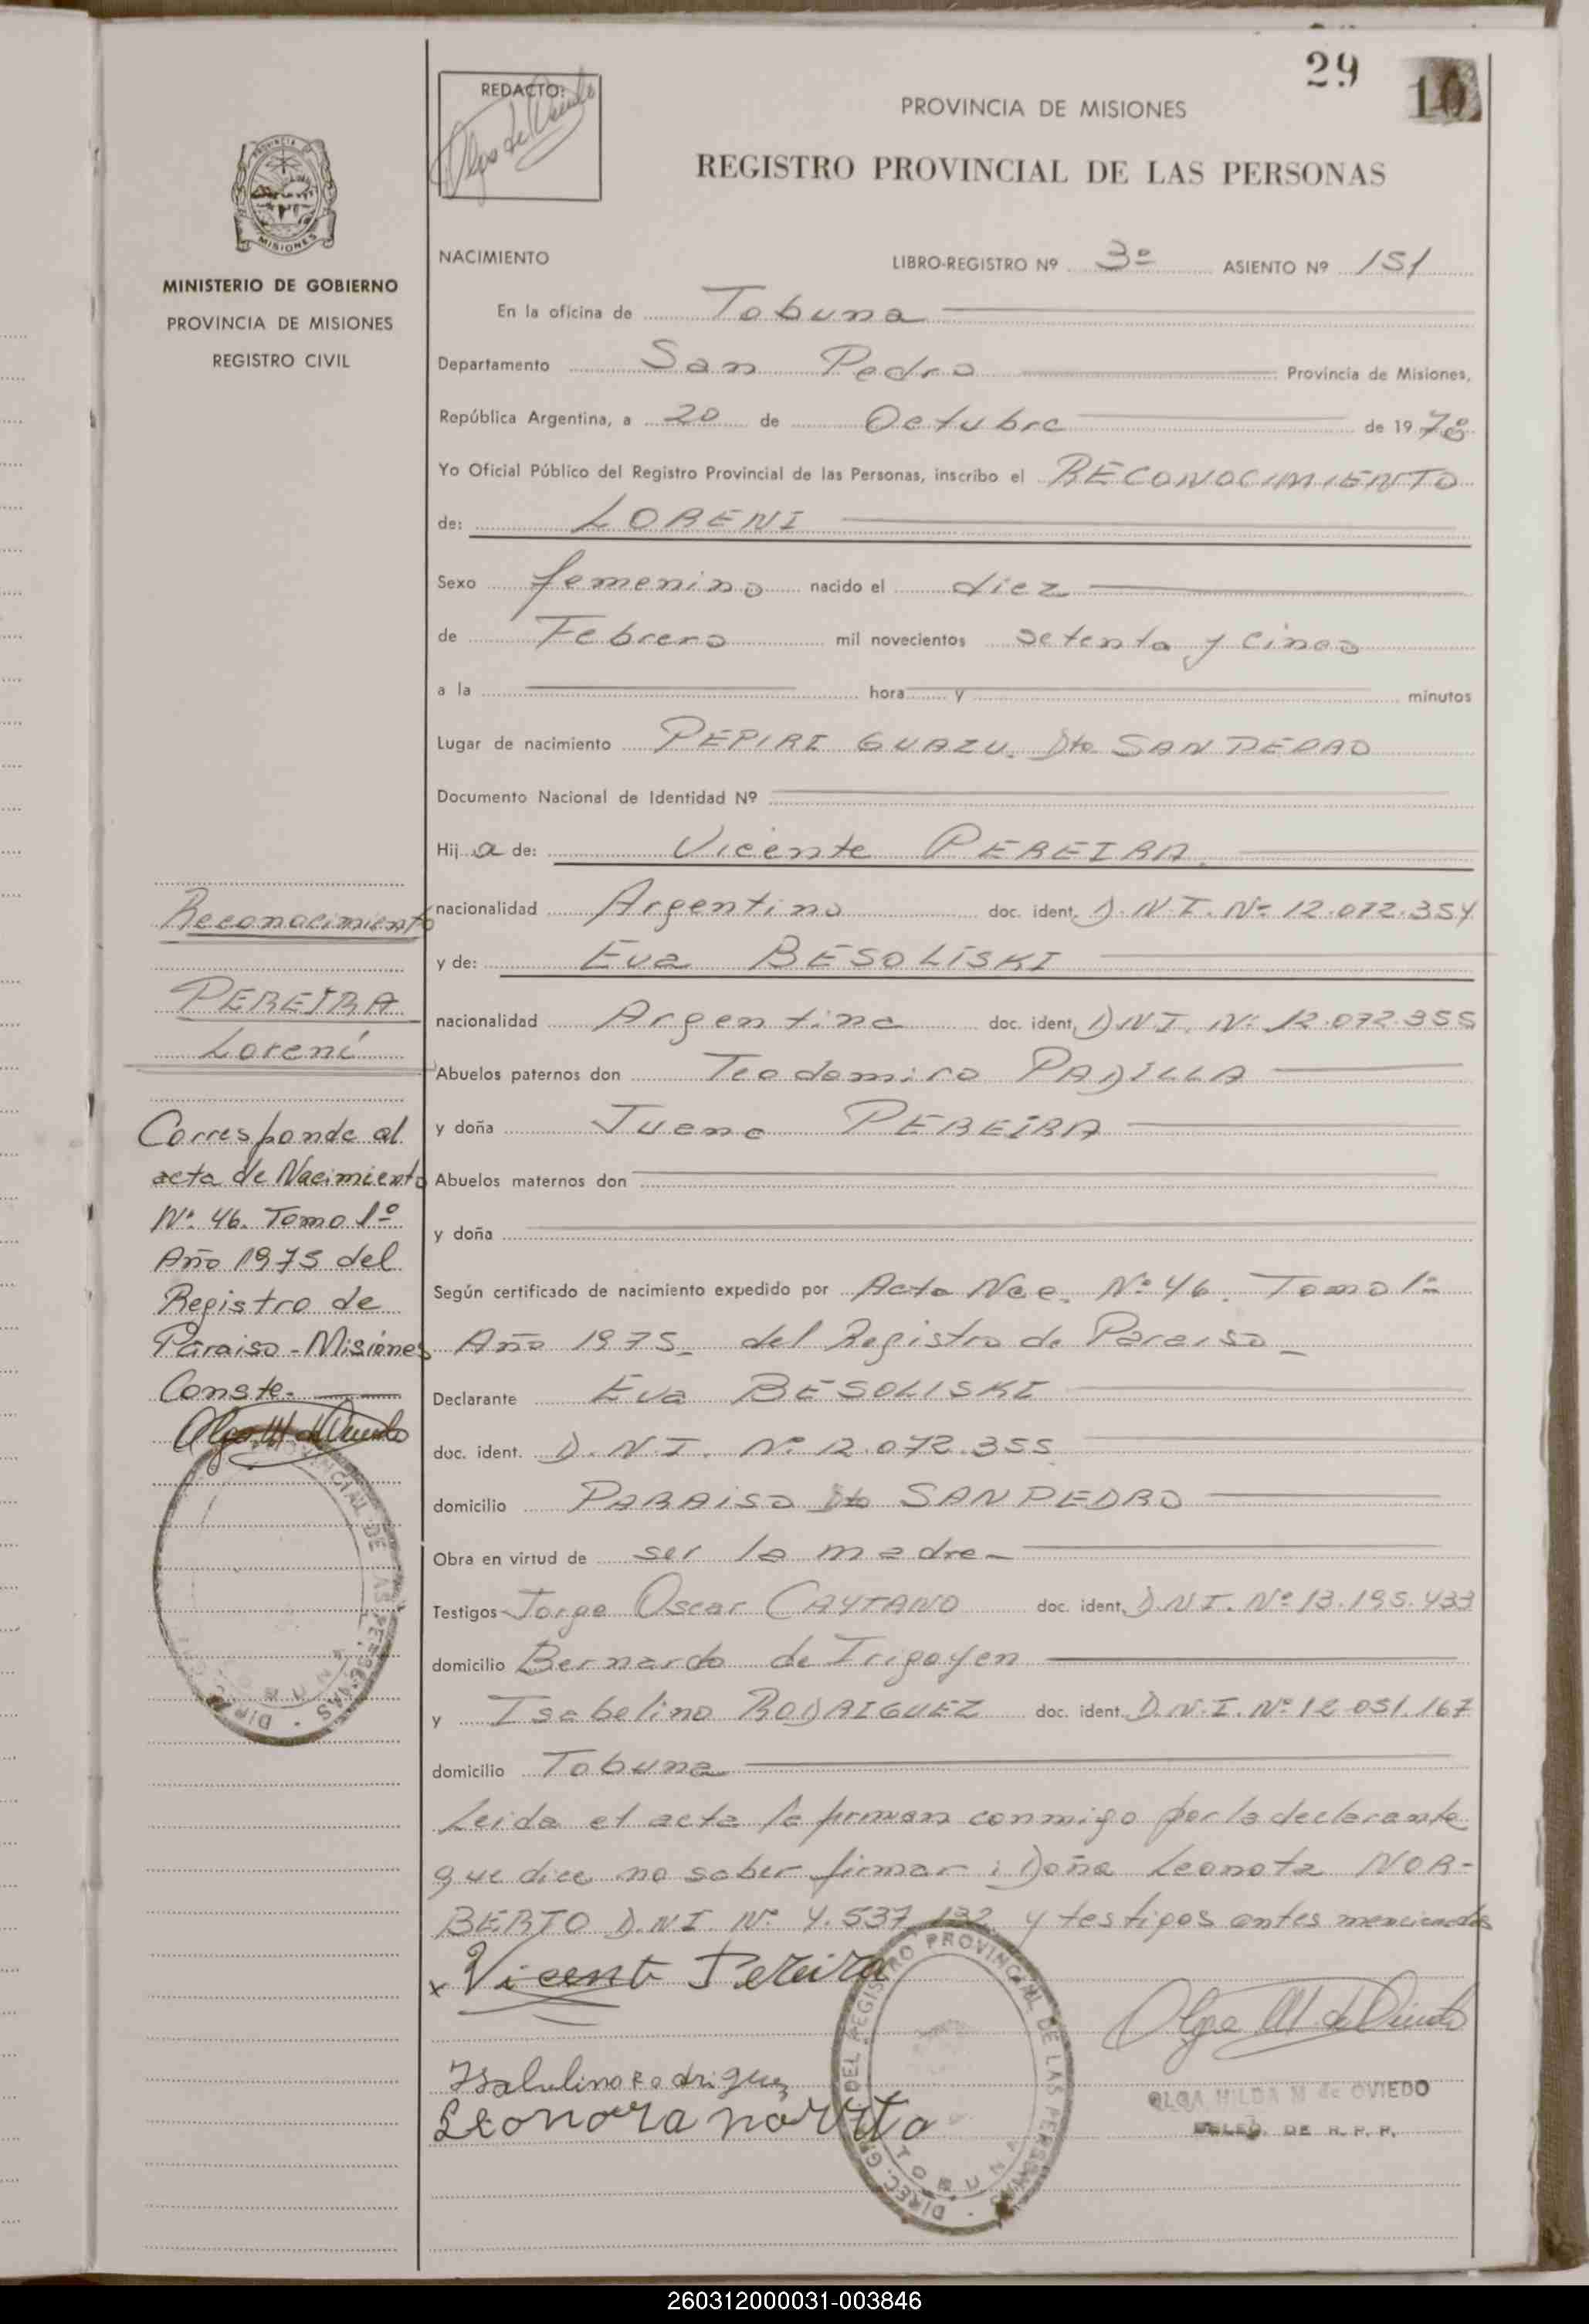 29 10
REDACTO:
PROVINCIA DE MISIONES
REGISTRO PROVINCIAL DE LAS PERSONAS
MISIONES
MINISTERIO DE GOBIERNO
PROVINCIA DE MISIONES
REGISTRO CIVIL
NACIMIENTO LIBRO-REGISTRO Nº 3º ASIENTO Nº 151
En la oficina de Tobuna
Departamento San Pedro Provincia de Misiones,
República Argentina, a 20 de Octubre de 1978
Yo Oficial Público del Registro Provincial de las Personas, inscribo el RECONOCIMIENTO
de: LORENI
Sexo femenino nacido el diez
de Febrero mil novecientos setenta y cinco
a la hora y minutos
Lugar de nacimiento PEPIRI GUAZU. Dto SAN PEDRO
Documento Nacional de Identidad Nº
Hij a de: Vicente PEREIRA
nacionalidad Argentino doc. ident. D.N.I. Nº 12.072.354
y de: Eva BESOLISKI
nacionalidad Argentina doc. ident. D.N.I. Nº 12.072.355
Abuelos paternos don Teodomiro PADILLA
y doña Juana PEREIRA
Abuelos maternos don
y doña
Según certificado de nacimiento expedido por Acta Nac. Nº 46. Tomo 1º
Año 1975_ del Registro de Paraiso_
Declarante Eva BESOLISKI
doc. ident. D.N.I. Nº 12.072.355
domicilio PARAISO Dto SAN PEDRO
Obra en virtud de ser la madre_
Testigos Jorge Oscar CAYTANO doc. ident. D.N.I. Nº 13.195.433
domicilio Bernardo de Irigoyen
y Isabelino RODRIGUEZ doc. ident. D.N.I. Nº 12.051.167
domicilio Tobuna
Leida el acta la firman conmigo por la declarante
que dice no saber firmar; Doña Leonora NOR-
BERTO D.N.I. Nº 4.537.132 y testigos antes mencionados
x Vicente Pereira
Olga M de Oviedo
Isabelino Rodriguez
Leonora
OLGA HILDA M de OVIEDO
DELEG. DE R. P. P.
DIREC. GRAL DEL REGISTRO PROVINCIAL DE LAS PERSONAS
TOBUNA
Reconocimiento
PEREIRA
Loreni
Corresponde al
acta de Nacimiento
Nº 46. Tomo 1º
Año 1975 del
Registro de
Paraiso - Misiones
Conste.
Olga M de Oviedo
260312000031-003846